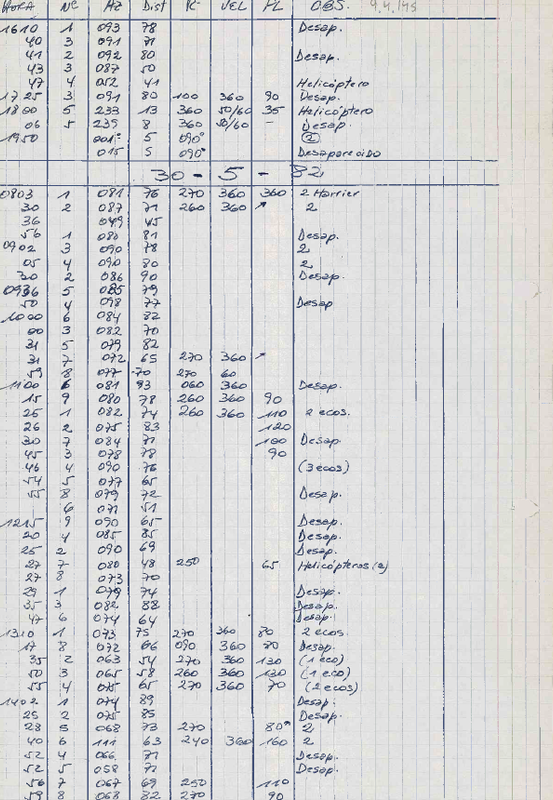 HORA Nº AZ Dist R- VEL FL OBS.
1610 1 093 78 Desap.
40 3 091 71
41 2 092 80 Desap.
43 3 087 50
47 4 052 41 Helicóptero
1725 3 091 80 100 360 90 Desap.
1800 5 233 13 360 50/60 35 Helicóptero
06 5 239 8 360 50/60 - Desap.
1950 001° 5 090° 2
015 5 090° Desaparecido
30 - 5 - 82
0803 1 081 76 270 360 360 2 Harrier
30 2 087 71 260 360 ↗ 2
36 049 45
56 1 080 81 Desap.
0902 3 090 78 2
05 4 090 80 2
30 2 086 90 Desap.
0936 5 085 79
50 4 098 77 Desap
1000 6 084 82
00 3 082 70
31 5 079 82
31 7 072 65 270 360 ↗
59 8 077 70 270 60
1100 6 081 93 060 360 Desap.
15 9 080 78 260 360 90
25 1 082 74 260 360 110 2 ecos.
26 2 075 83 120
30 7 084 71 100 Desap.
45 3 078 78 90
46 4 090 76 (3 ecos)
54 5 077 65
55 8 079 72 Desap.
6 071 51
1215 9 090 65 Desap.
20 4 085 85 Desap.
25 2 090 69 Desap.
27 7 080 48 250 65 Helicópteros (2)
27 8 073 70
29 1 079 74 Desap.
35 3 082 88 Desap.
47 6 074 64 Desap.
1310 1 073 75 270 360 80 2 ecos.
17 8 072 66 090 360 80 Desap.
35 2 063 54 270 360 130 (1 eco)
50 3 065 58 260 360 130 (1 eco)
55 4 075 65 270 360 70 (2 ecos)
1402 1 074 89 Desap.
25 2 075 85 Desap.
28 5 068 73 270 80 2
40 6 111 63 240 360 160 2
52 4 066 71 Desap.
52 5 058 71 Desap.
56 7 067 69 250 110
59 8 068 82 270 90